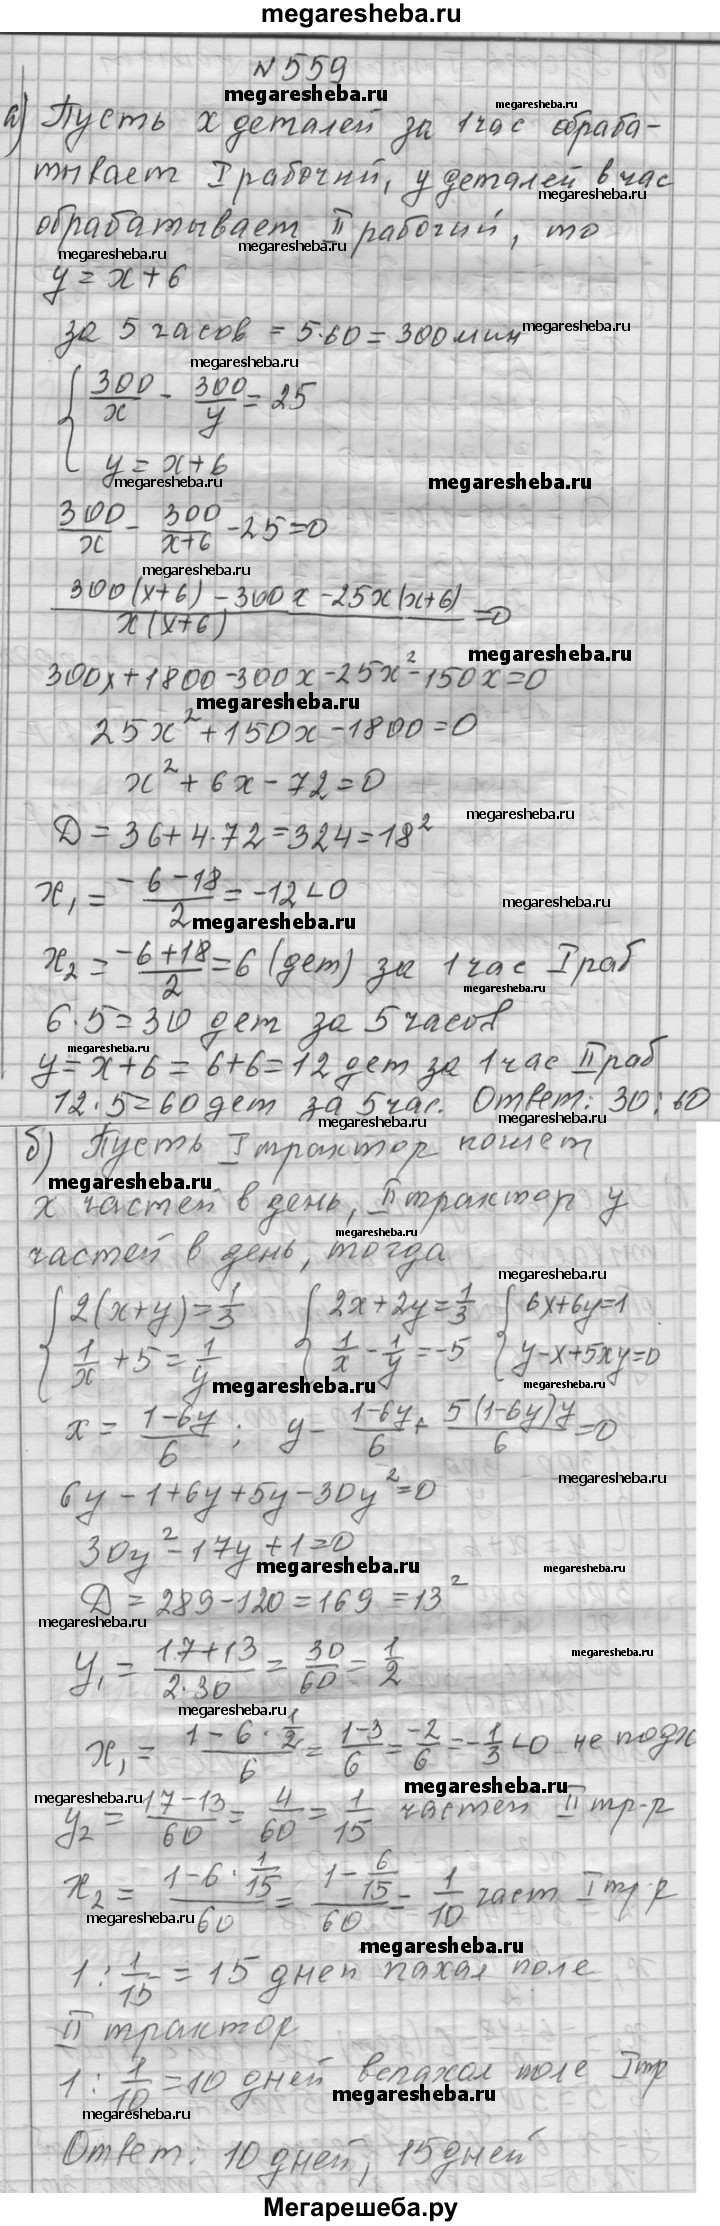 megaresheba.ru
№559
а) Пусть x деталей за 1 час обраба-
тывает I рабочий, y деталей в час
обрабатывает II рабочий, то
y = x + 6
за 5 часов = 5·60 = 300 мин
{ 300/x - 300/y = 25
y = x + 6
300/x - 300/(x+6) - 25 = 0
(300(x+6) - 300x - 25x(x+6))/(x(x+6)) = 0
300x + 1800 - 300x - 25x² - 150x = 0
25x² + 150x - 1800 = 0
x² + 6x - 72 = 0
D = 36 + 4·72 = 324 = 18²
x₁ = (-6-18)/2 = -12 < 0
x₂ = (-6+18)/2 = 6 (дет) за 1 час I раб
6·5 = 30 дет за 5 часов
y = x + 6 = 6 + 6 = 12 дет за 1 час II раб
12·5 = 60 дет за 5 час. Ответ: 30; 60
б) Пусть I трактор пашет
x частей в день, II трактор y
частей в день, тогда
{ 2(x+y) = 1/3 { 2x + 2y = 1/3 { 6x + 6y = 1
1/x + 5 = 1/y 1/x - 1/y = -5 y - x + 5xy = 0
x = (1-6y)/6 ; y - (1-6y)/6 + 5(1-6y)y/6 = 0
6y - 1 + 6y + 5y - 30y² = 0
30y² - 17y + 1 = 0
D = 289 - 120 = 169 = 13²
y₁ = (17+13)/(2·30) = 30/60 = 1/2
x₁ = (1-6·1/2)/6 = (1-3)/6 = -2/6 = -1/3 < 0 не подх
y₂ = (17-13)/60 = 4/60 = 1/15 частей II тр-р
x₂ = (1-6·1/15)/60 = (1-6/15)/60 = 1/10 част I тр-р
1 : 1/15 = 15 дней пахал поле
II трактор
1 : 1/10 = 10 дней вспахал поле I тр
Ответ. 10 дней, 15 дней
Мегарешеба.ру